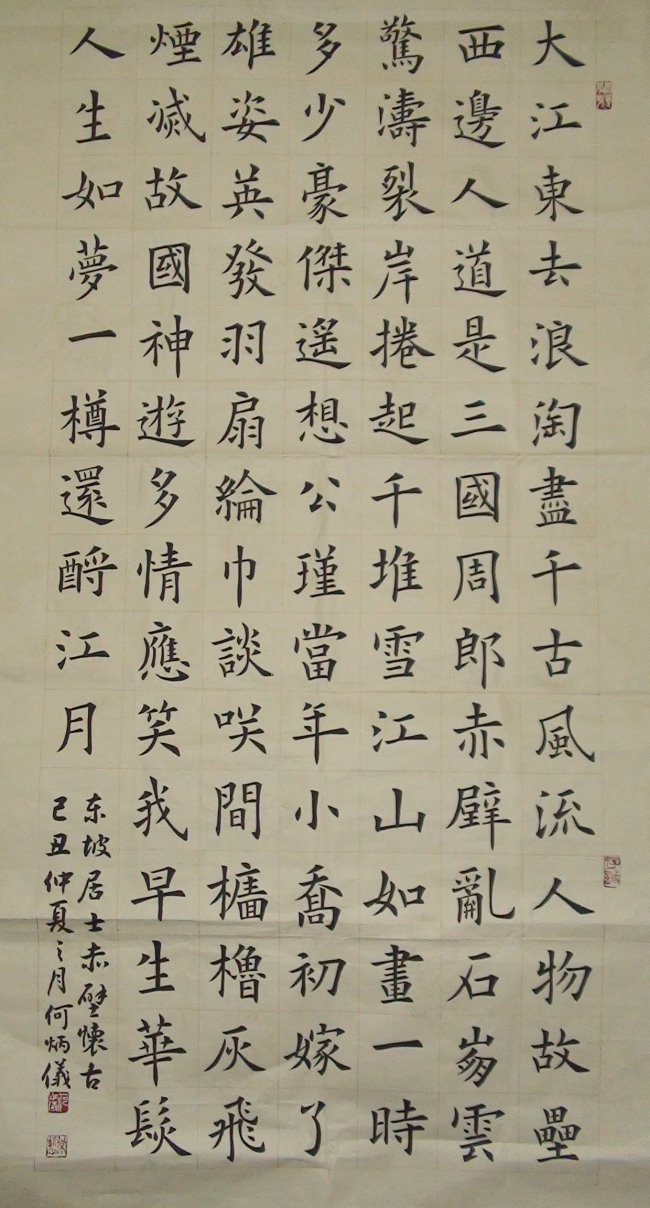 大江東去浪淘盡千古風流人物故壘
西邊人道是三國周郎赤壁亂石崩雲
驚濤裂岸捲起千堆雪江山如畫一時
多少豪傑遙想公瑾當年小喬初嫁了
雄姿英發羽扇綸巾談咲間檣櫓灰飛
煙滅故國神遊多情應笑我早生華髮
人生如夢一樽還酹江月
东坡居士赤壁懷古
己丑仲夏之月何炳儀